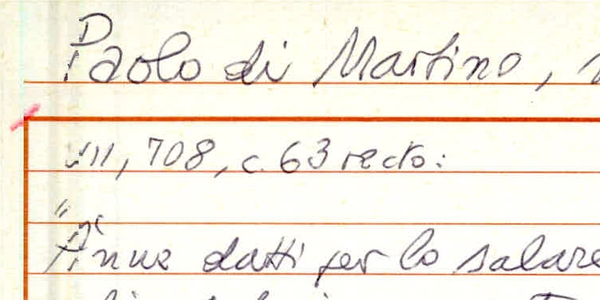 Paolo di Martino,
VIII, 708, c. 63 recto:
datti per lo salare